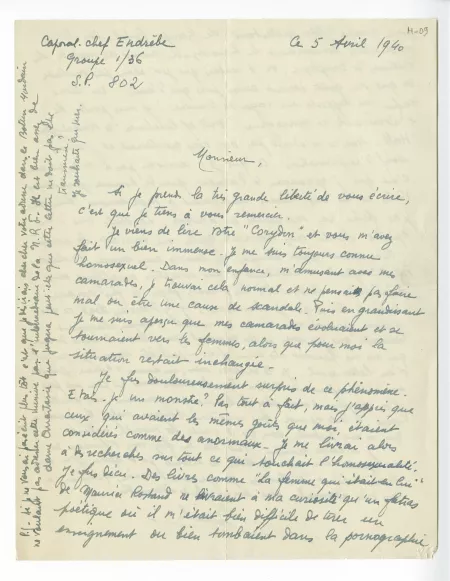 H-03
Caporal-chef Endrèbe
Groupe 1/36
S.P. 802
Ce 5 Avril 1940
Monsieur,
Si je prends la très grande liberté de vous écrire,
c'est que je tiens à vous remercier.
Je viens de lire votre "Corydon" et vous m'avez
fait un bien immense. Je me suis toujours connu
homosexuel. Dans mon enfance, m'amusant avec mes
camarades, je trouvai cela normal et ne pensais pas faire
mal ou être une cause de scandale. Puis en grandissant
je me suis aperçu que mes camarades évoluaient et se
tournaient vers les femmes, alors que pour moi la
situation restait inchangée.
Je fus douloureusement surpris de ce phénomène.
Etais-je un monstre? Pas tout à fait, mais j'appris que
ceux qui avaient les mêmes goûts que moi étaient
considérés comme des anormaux. Je me livrai alors
à des recherches sur tout ce qui touchait l'homosexualité.
Je fus déçu. Des livres comme "la femme qui était en lui"
de Maurice Rostand ne livraient à ma curiosité qu'un fatras
poétique où il m'était bien difficile de tirer un
enseignement ou bien tombaient dans la pornographie
P.S. Si je ne vous ai pas écrit plus tôt c'est que j'étais allé chercher votre adresse dans le Bottin mondain
ne voulant pas adresser cette lettre par l'intermédiaire de la N.R.F. Il est bien
dans
que cette lettre ne soit pas
transmise,
je souhaite que